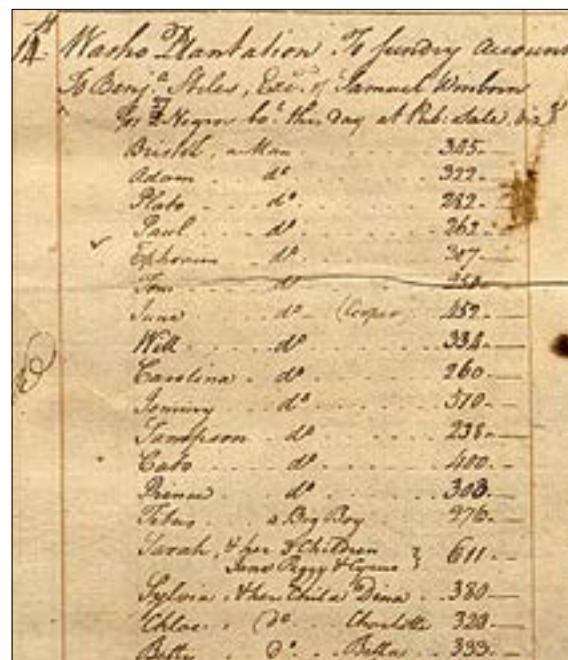 14 Washo Plantation To sundry accounts
To Benj.a Stiles, Exr. of Samuel Winborn
for Negros bo.t this day at Pub: Sale, viz.
Bristol, a Man 305
Adam do 322
Plato do 282
Paul do 262
Ephraim do 307
Tom do
June do (Cooper 452
Will do 334
Carolina do 260
Jemmy do 510
Sampson do 238
Cato do 400
Prince do 303
Titus a Big Boy 276
Sarah, & her 3 Children } 611
June Peggy & Cyrus
Sylvia & her Child Dina 380
Chloe do Charlotte 328
Betty do Bella 333